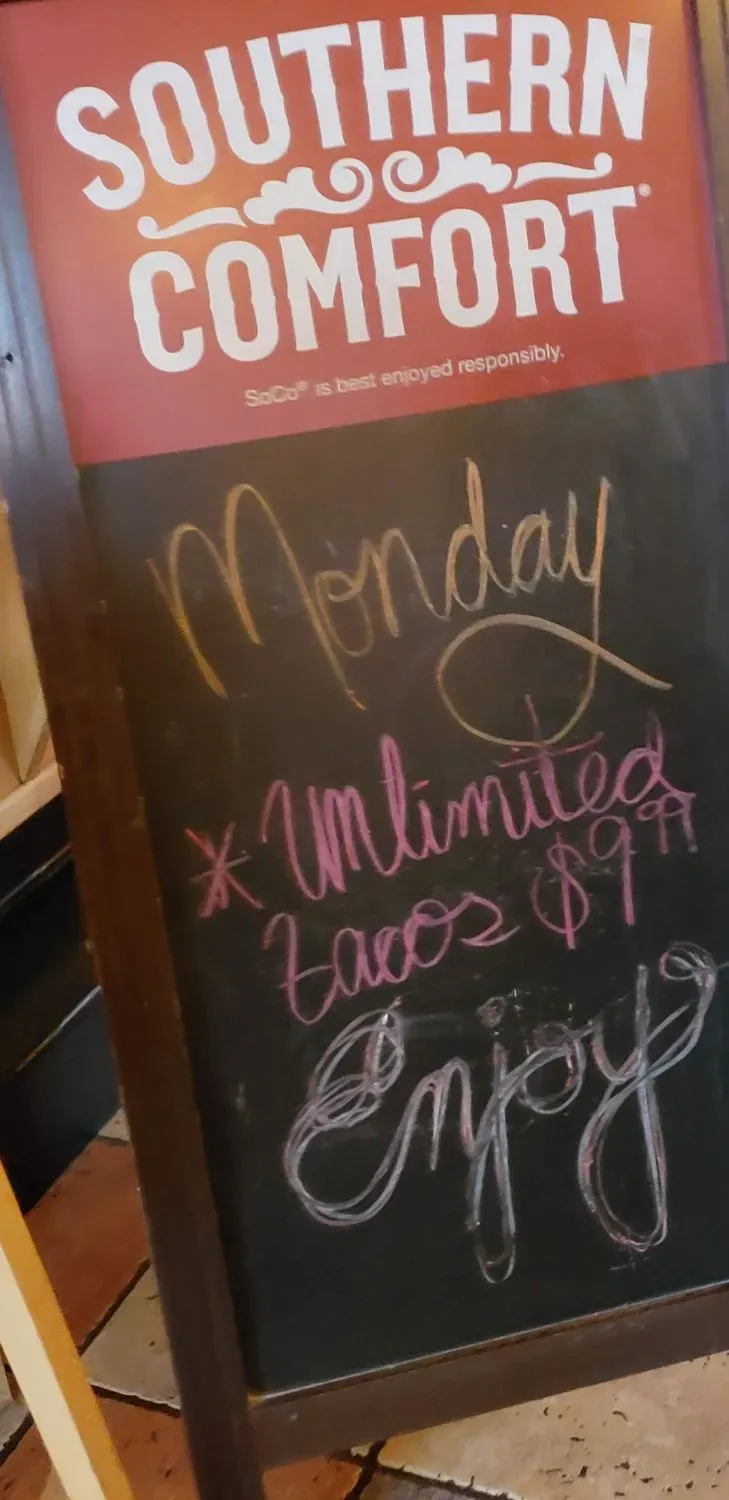 SOUTHERN
COMFORT®
SoCo® is best enjoyed responsibly.
Monday
* Unlimited
tacos $9.99
Enjoy